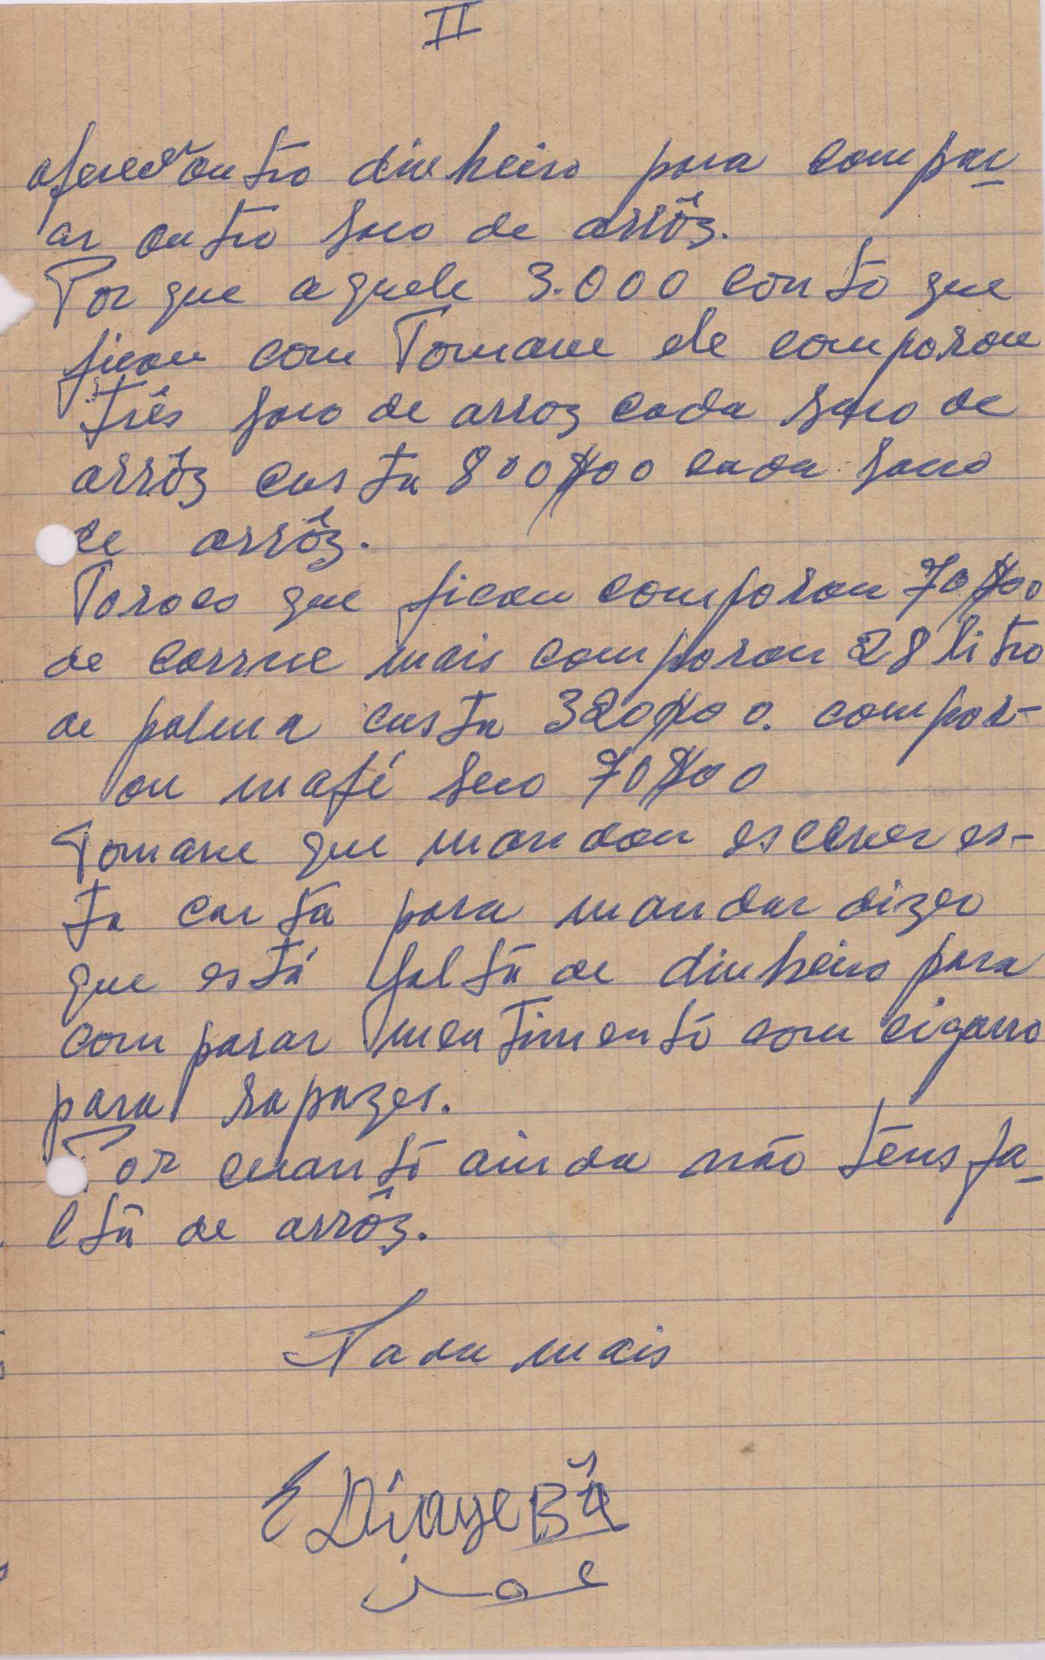 II
outro dinheiro para compar-
ar outro saco de arrôz.
Por que aquele 3.000 conto que
ficou com Tomane ele comparou
três saco de arroz cada saco de
arrôz custa 800$00 cada saco
de arrôz.
Toroco que ficou comparou 70$00
de carrne mais comparou 28 litro
de palma custa 320$00. compar-
ou mafé seco 70$00
Tomane que mandou escever es-
ta carta para mandar dizer
que está falta de dinheiro para
comparar mentimento com cigarro
para rapazes.
Por cuantô ainda não têns fa-
lta de arrôz.
Nada mais